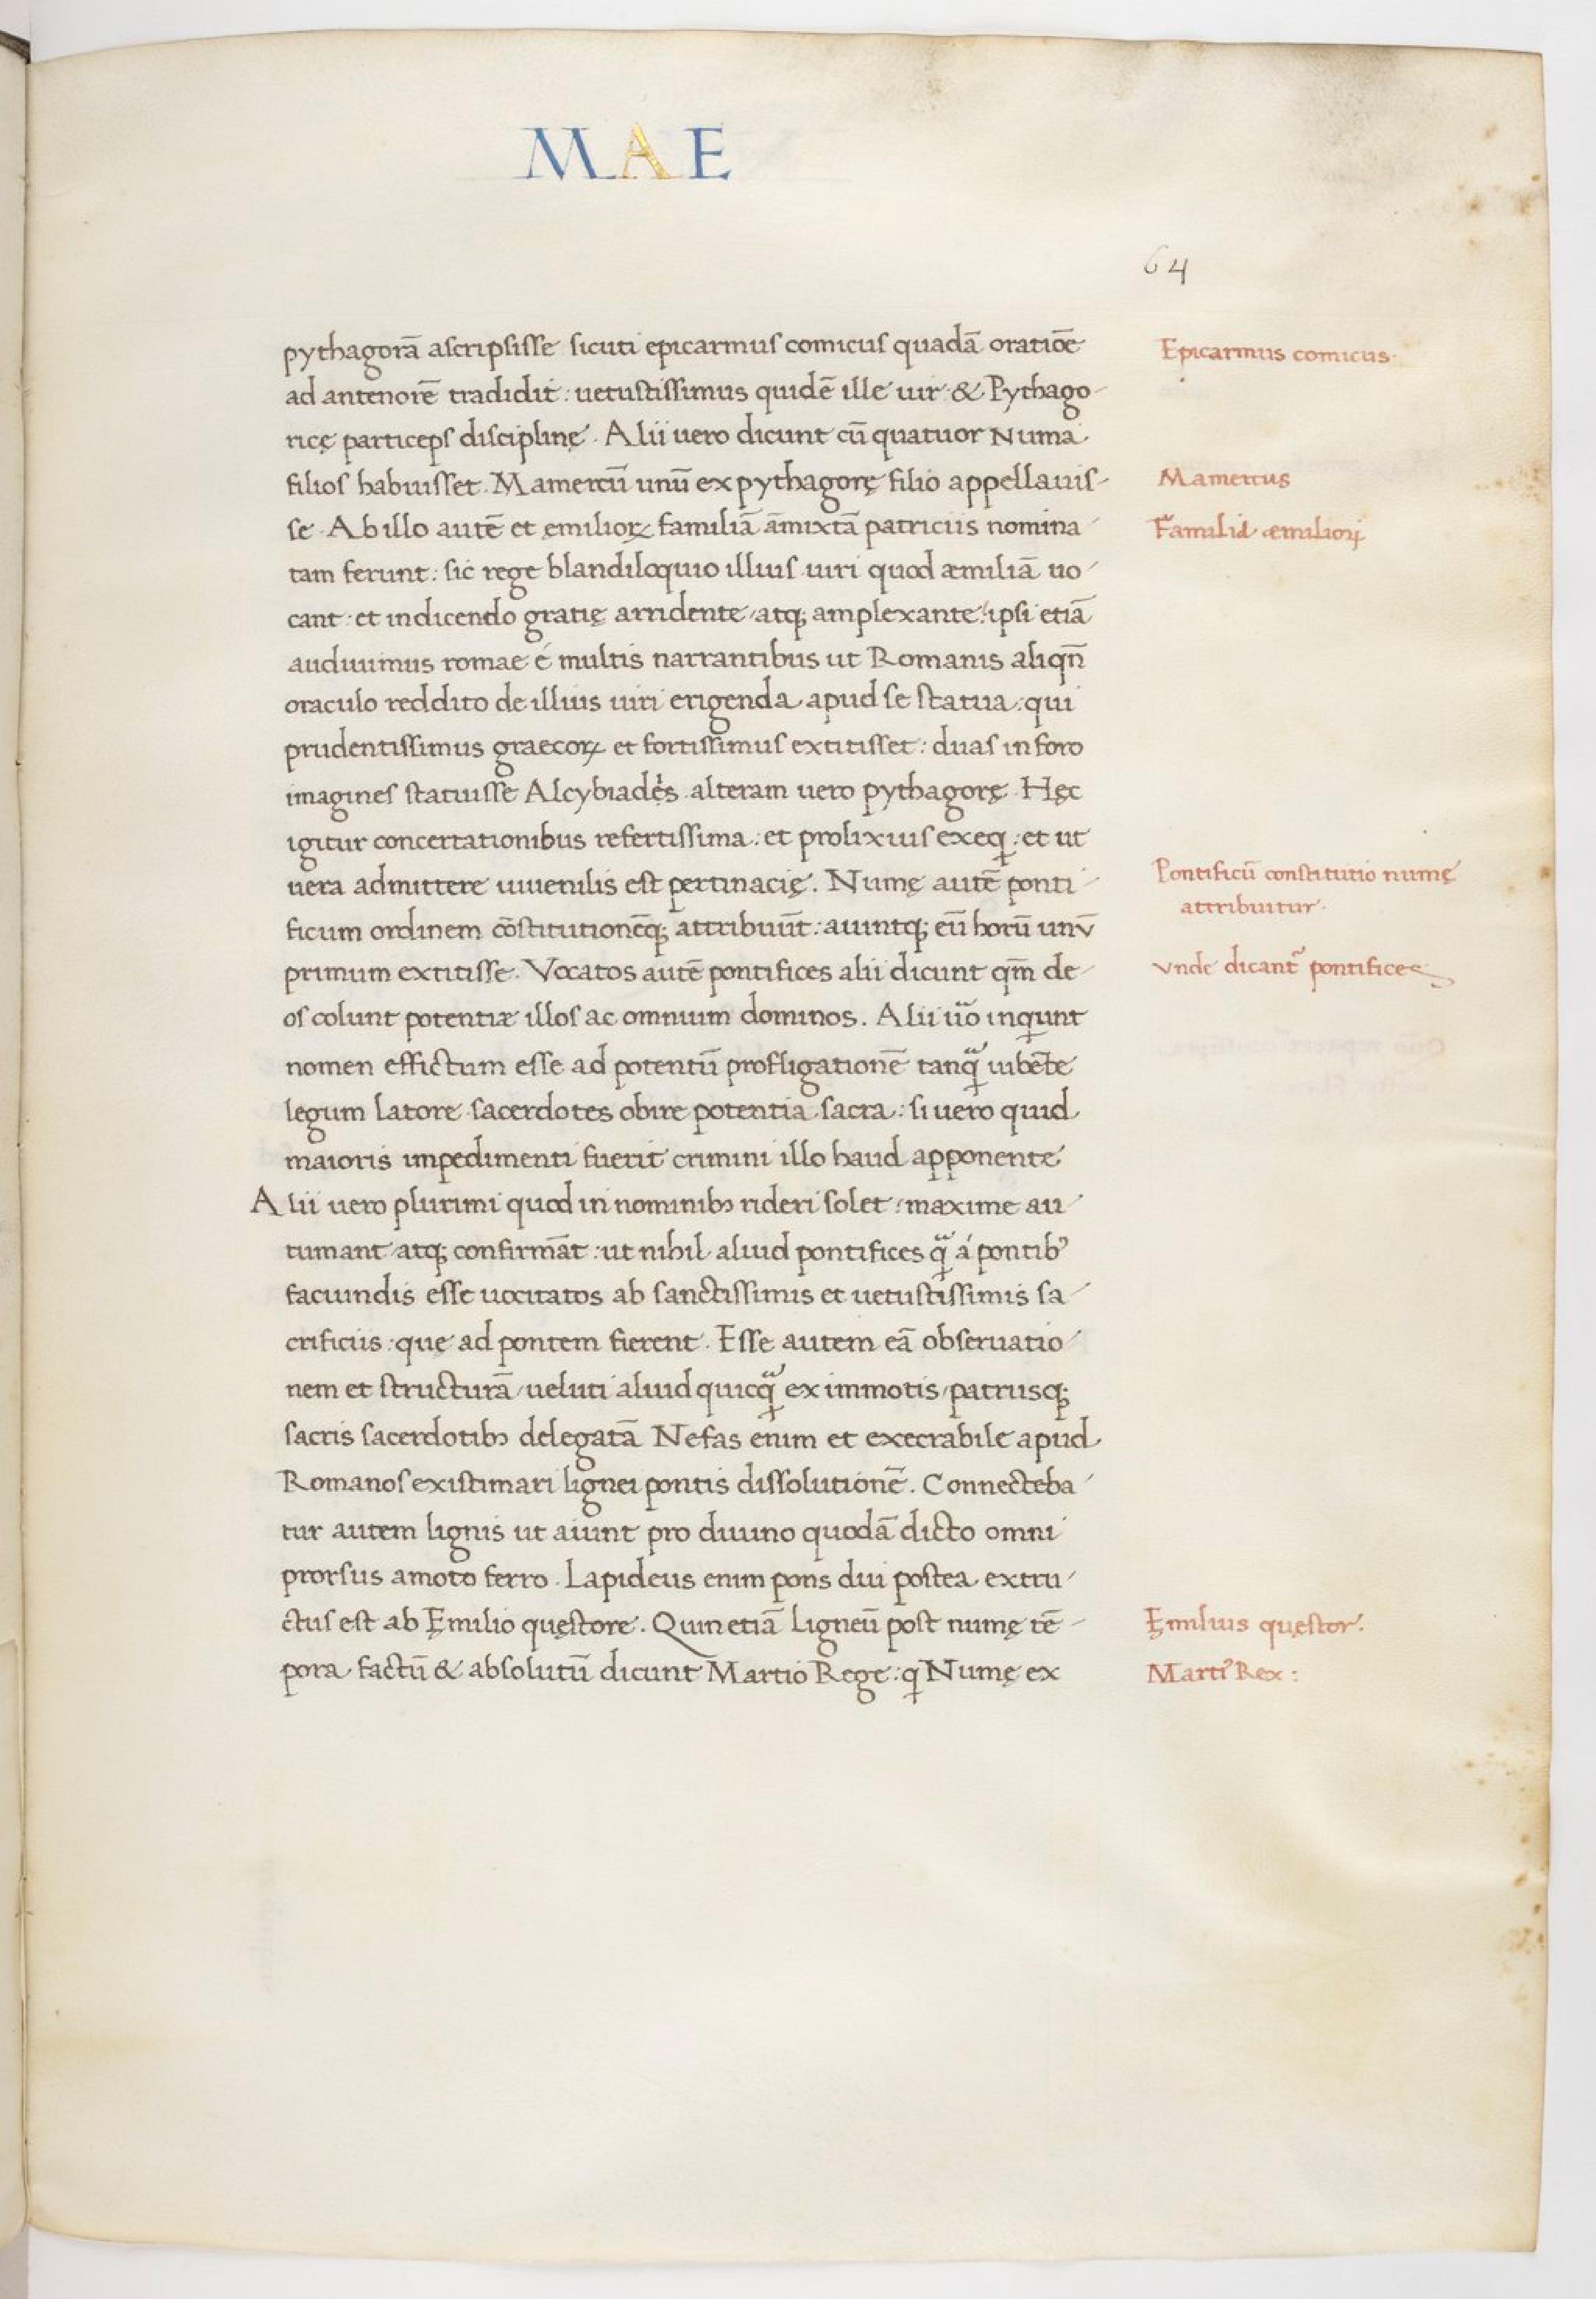 MAE
64
pythagorā ascripsisse sicuti epicarmus comicus quadā oratiōe
ad antenorē tradidit: uetustissimus quidē ille uir & Pythago-
ricę particeps disciplinę. Alii uero dicunt cū quatuor Numa
filios habuisset. Mamercū unū ex pythagorę filio appellauis-
se. Ab illo autē et ęmilioꝝ familiā āmixtā patriciis nomina-
tam ferunt: sic rege blandiloquio illius uiri quod æmiliā uo-
cant: et in dicendo gratię arridente/atq; amplexante: ipsi etiā
audiuimus romae é multis narrantibus ut Romanis aliqn̄
oraculo reddito de illius uiri erigenda apud se statua: qui
prudentissimus graecoꝝ et fortissimus extitisset: duas in foro
imagines statuisse Alcybiadęs. alteram uero pythagorę. Hęc
igitur concertationibus refertissima: et prolixius exeqͥ: et ut
uera admittere iuuenilis est pertinacię. Numę autē ponti-
ficum ordinem cōstitutionēq; attribuūt: aiuntq; eū horū unū
primum extitisse. Vocatos autē pontifices alii dicunt qm̄ de-
os colunt potentiæ illos ac omnium dominos. Alii uͦo inqͥunt
nomen effictum esse ad potentū profligationē tanqͣ iubēte
legum latore sacerdotes obire potentia sacra: si uero quid
maioris impedimenti fuerit crimini illo haud apponente
Alii uero plurimi quod in nominibꝫ rideri solet: maxime au-
tumant/atq; confirmāt: ut nihil aliud pontifices qͣ á pontibꝰ
faciundis esse uocitatos ab sanctissimis et uetustissimis sa-
crificiis: quę ad pontem fierent. Esse autem eā obseruatio-
nem et structurā/ueluti aliud quicqͣ ex immotis/patriisq;
sacris sacerdotibꝫ delegatā Nefas enim et execrabile apud
Romanos existimari lignei pontis dissolutionē. Connecteba-
tur autem lignis ut aiunt pro diuino quodā dicto omni
prorsus amoto ferro. Lapideus enim pons diu postea extru-
ctus est ab Ęmilio quęstore. Quin etiā ligneū post numę tē-
pora factū & absolutū dicunt Martio Rege: qͥ Numę ex
Epicarmus comicus.
Mamercus
Familia æmilioꝝ
Pontificū constitutio numę
attribuitur.
Vnde dicantͬ pontifices
Ęmilius quęstor.
Martiꝰ Rex: